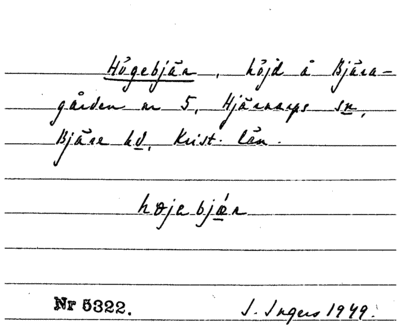 Högebjär, höjd å Bjära-
gården nr 5, Hjärnarps sn,
Bjäre hd, Krist. län.
højebjær
Nr 5322.
I. Ingers 1949.